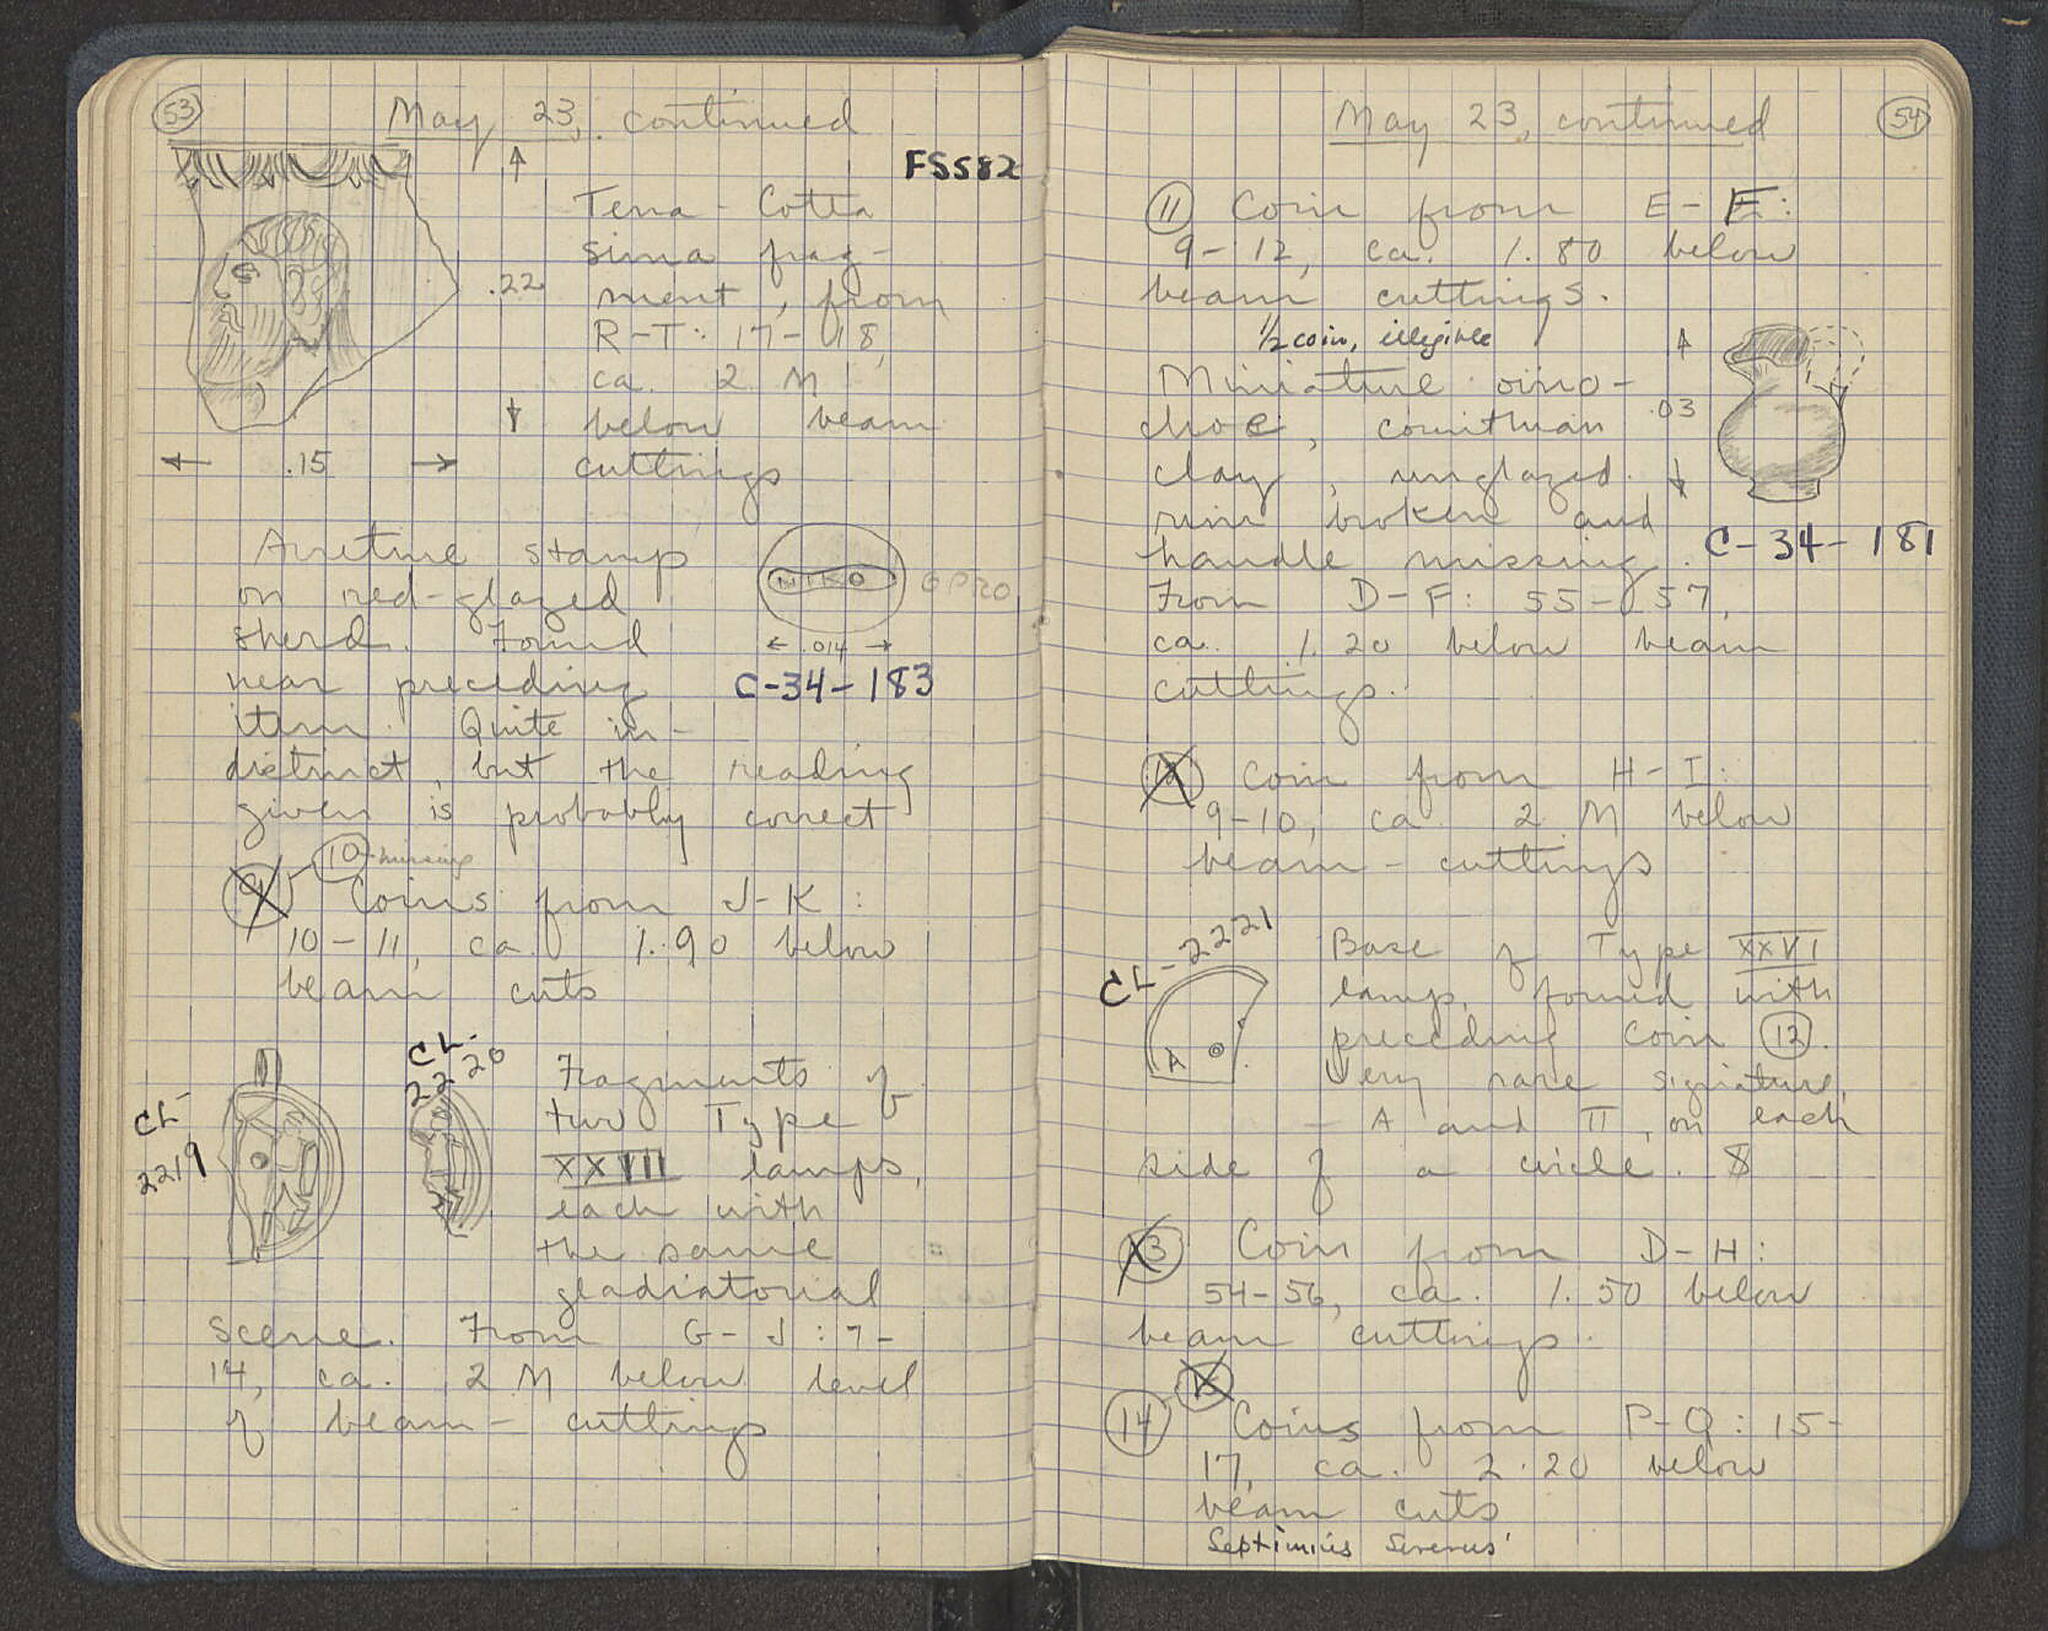 53
May 23, continued
FS582
Terra-Cotta
sima frag-
ment, from
R-T: 17-18,
ca. 2 M
below beam
cuttings
.22
.15
Arretine stamp
on red-glazed
sherd. Found
near preceding
item. Quite in-
distinct, but the reading
given is probably correct
NIKO
.014
C-34-183
9 - 10 - missing
Coins from J-K:
10-11, ca. 1.90 below
beam cuts
CL-
2219
CL-
2220
Fragments of
two Type
XXVII lamps,
each with
the same
gladiatorial
scene. From G-J: 7-
14, ca. 2 M below level
of beam-cuttings
54
May 23, continued
11 Coin from E-F:
9-12, ca. 1.80 below
beam cuttings.
1/2 coin, illegible
Miniature oino-
choe, corinthian
clay, unglazed.
rim broken and
handle missing.
From D-F: 55-57,
ca. 1.20 below beam
cuttings.
.03
C-34-181
12 Coin from H-I:
9-10, ca 2 M below
beam-cuttings
CL-2221
A
Base of Type XXVI
lamp, found with
preceding coin 12.
Very rare signature,
- A and Π, on each
side of a circle.
13 Coin from D-H:
54-56, ca. 1.50 below
beam cuttings.
14 15 Coins from P-Q: 15-
17, ca. 2.20 below
beam cuts
Septimius Severus